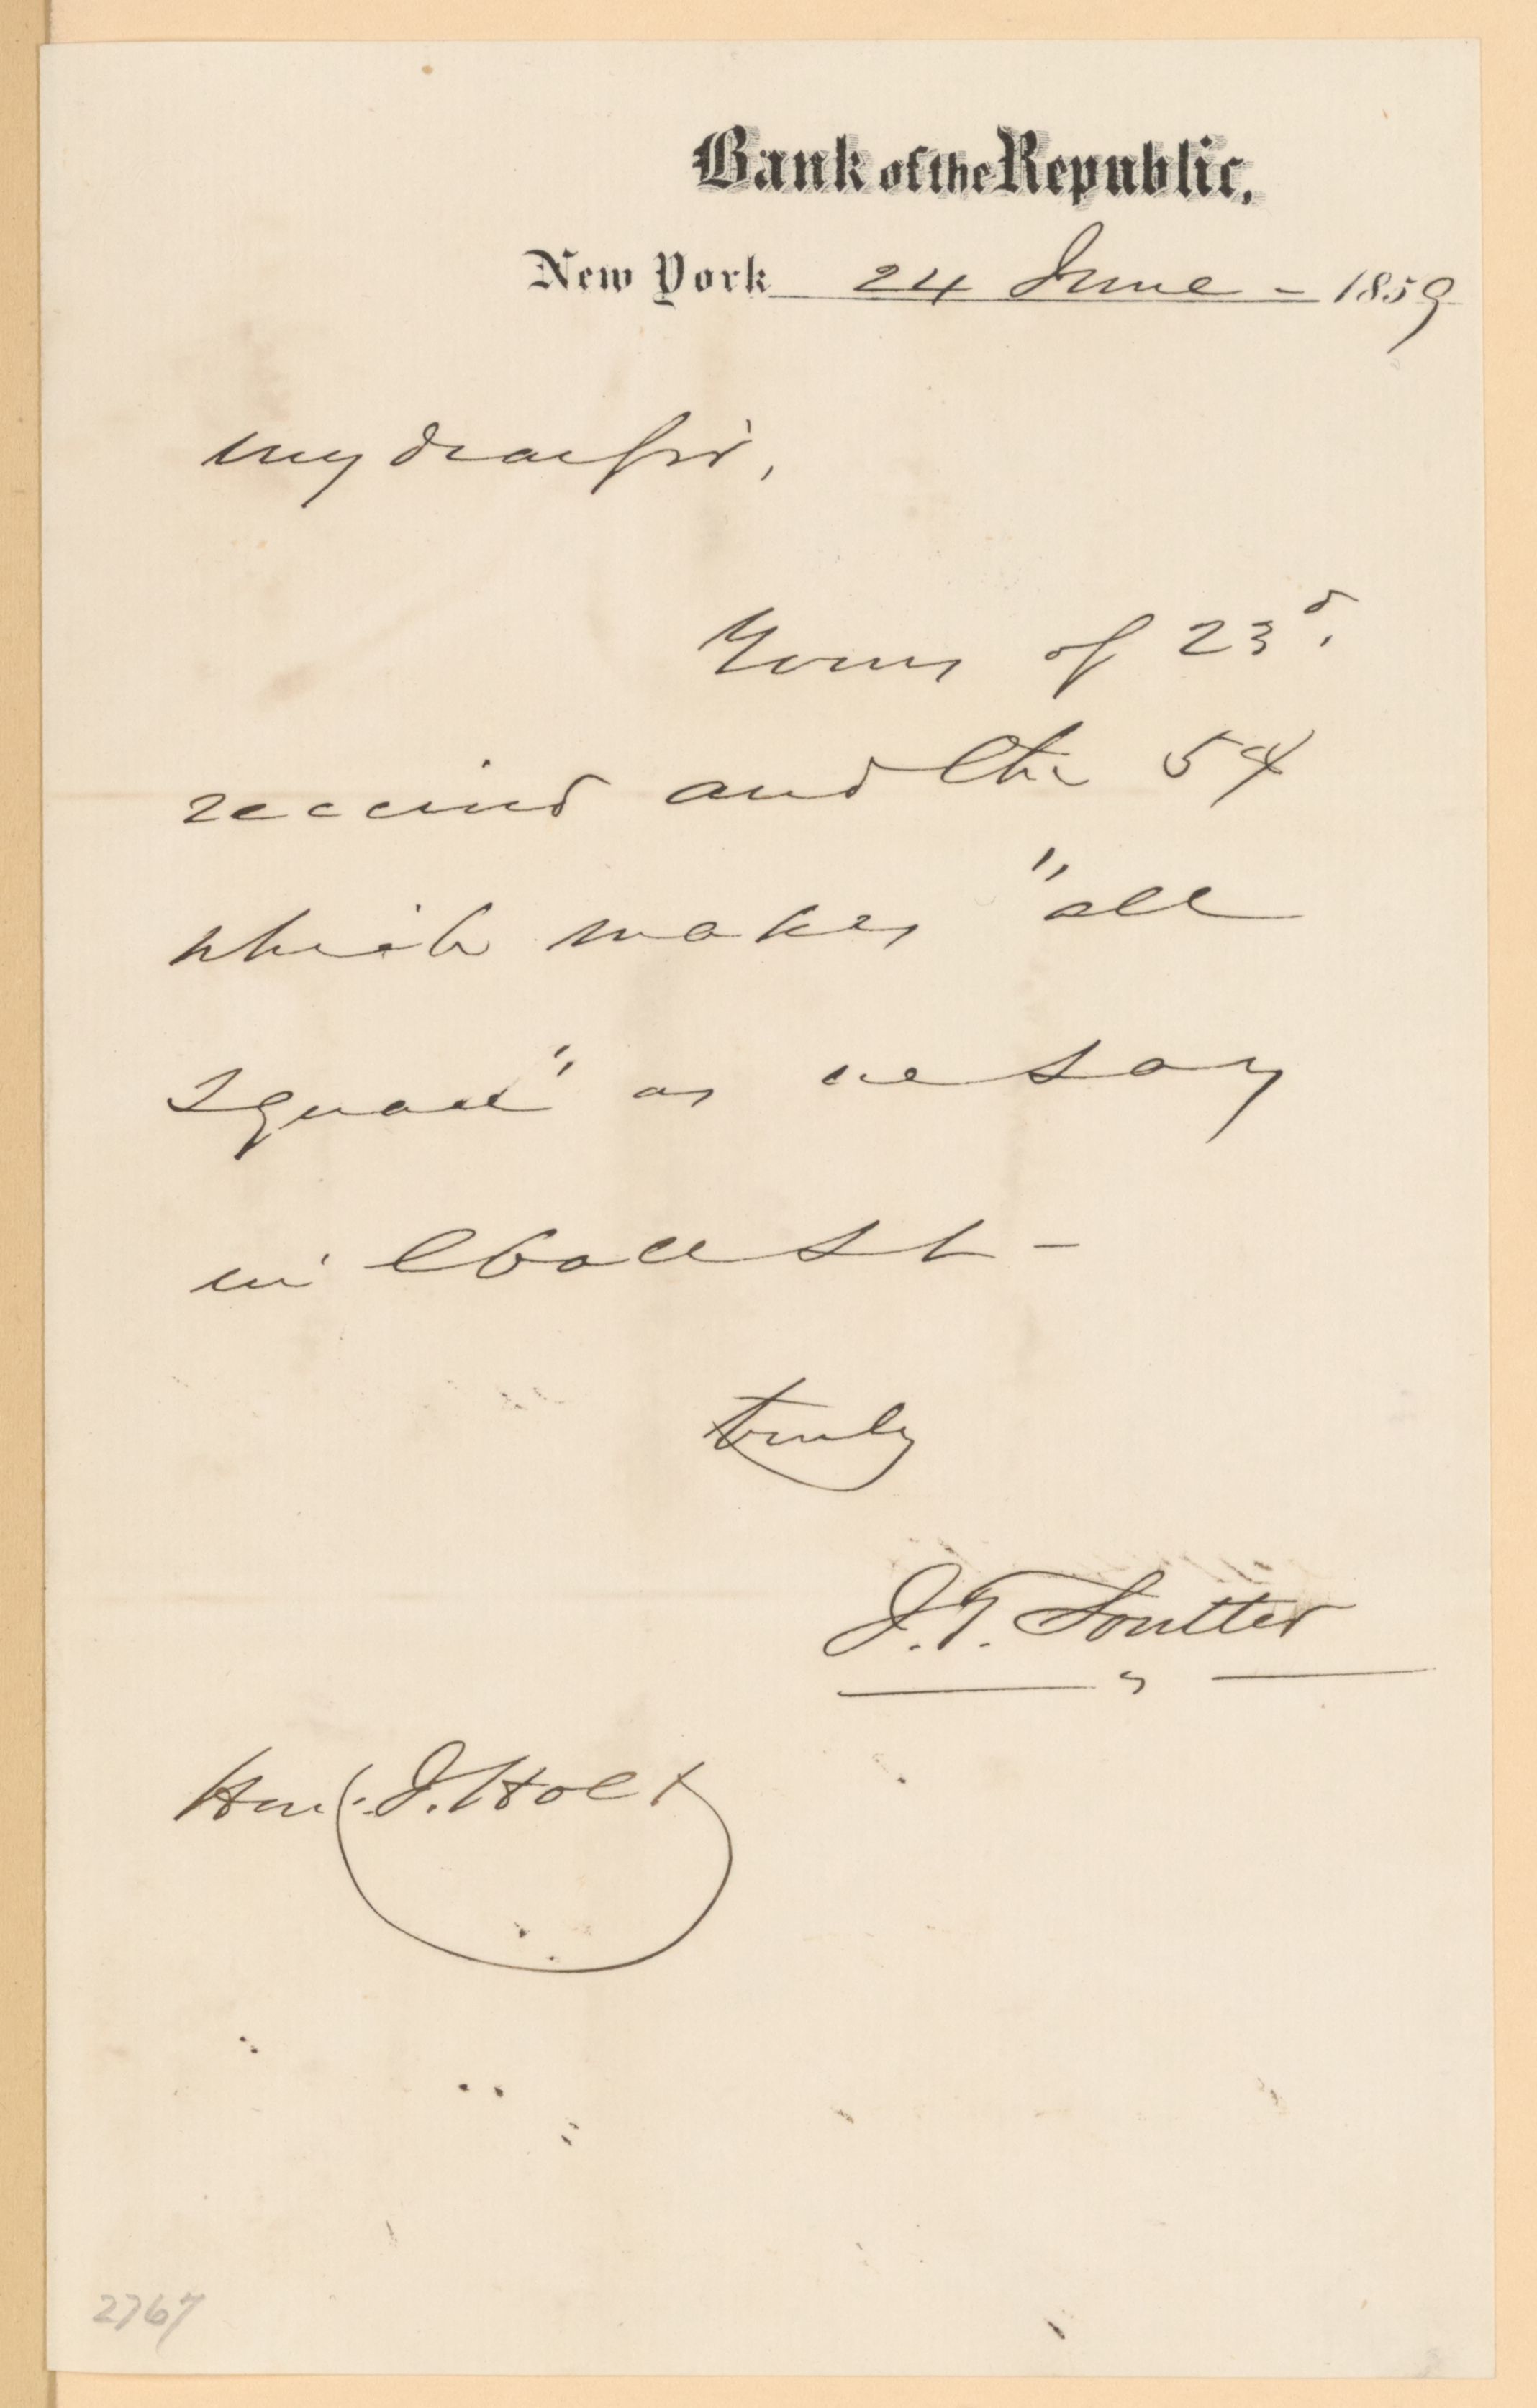 Bank of the Republic,
New York 24 June - 1859
My dear Sir,
Yours of 23d.
received and the 54
which makes "all
square" as we say
in Wall St -
truly
J. T. Soutter
Hon. J. Holt
2767